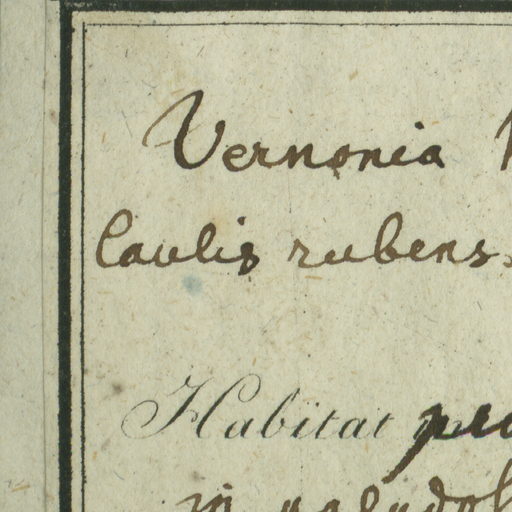 Vernonia
Caulis rubens.
Habitat
in